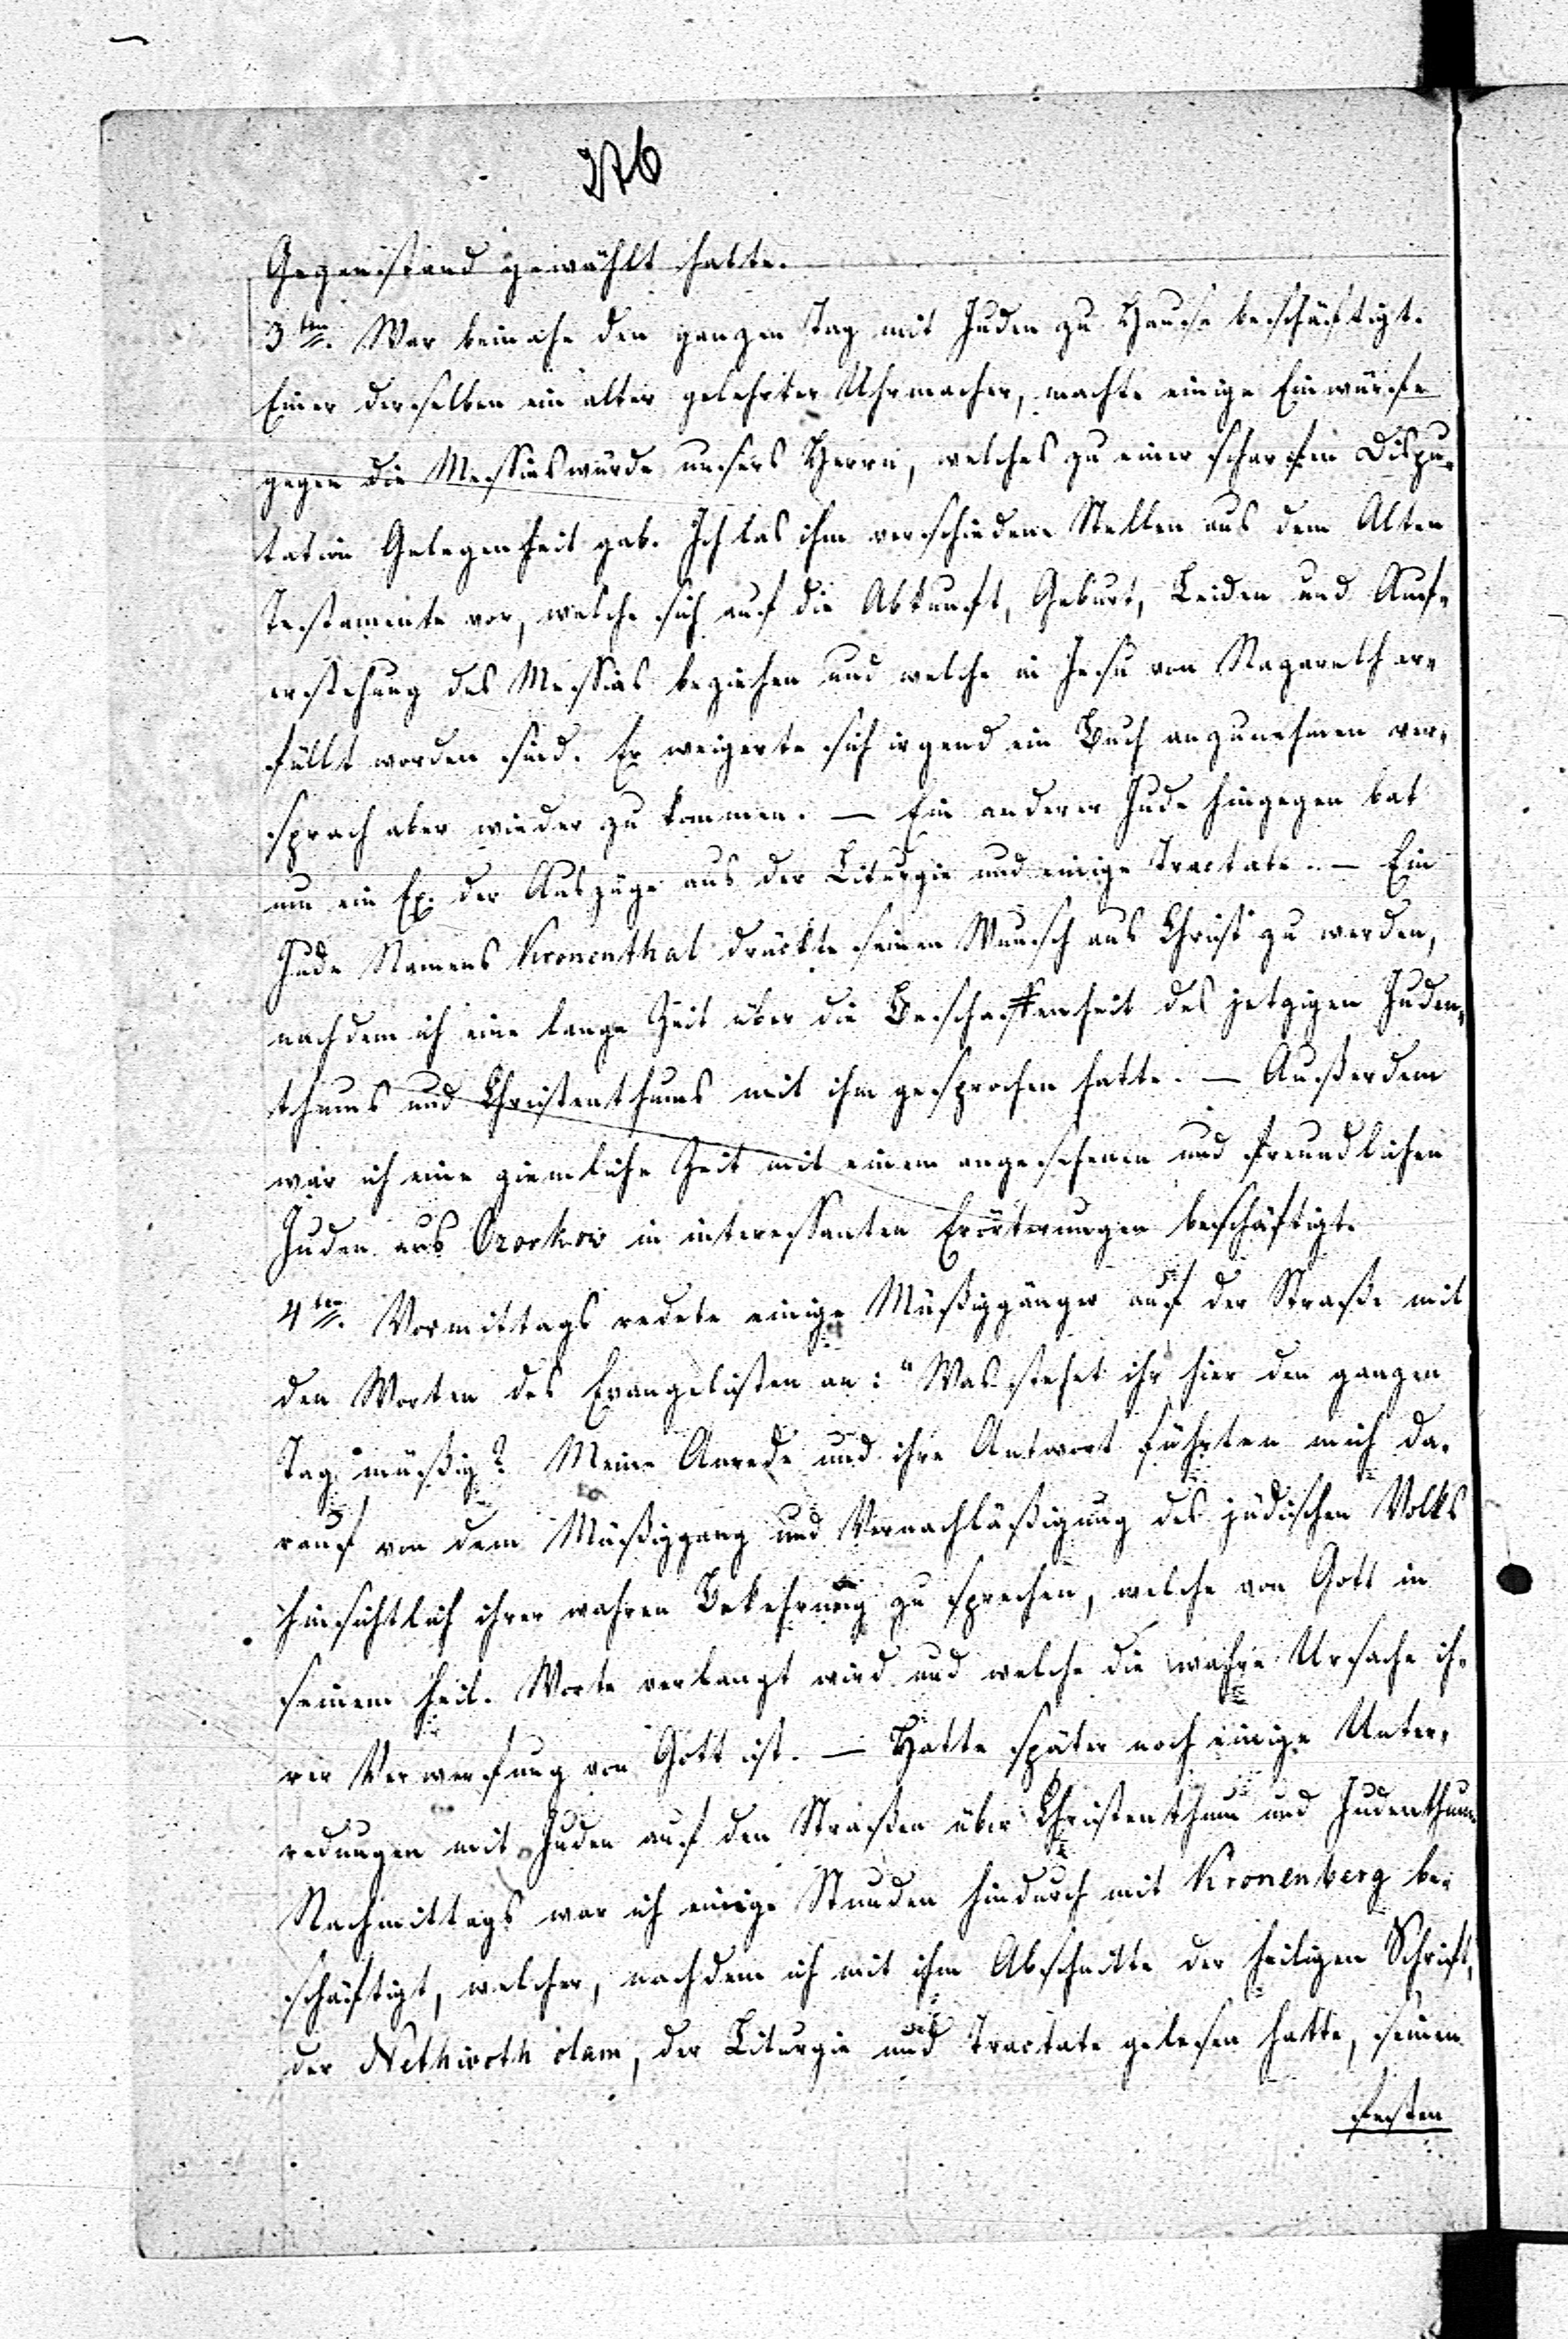 Gegenstand gewählt hatte.
3ten. War beinahe den ganzen Tag mit Juden zu Hause beschäftigt.
Einer derselben ein alter gelehrter Uhrmacher, machte einige Einwürfe
gegen die Messiaswürde unsers Herrn, welches zu einer scharfen Dispu-
tation Gelegenheit gab. Ich las ihm verschiedene Stellen aus dem Alten
Testamente vor, welche sich auf die Abkunft, Geburt, Leiden und Auf-
erstehung des Messias beziehen und welche in Jesu von Nazareth er-
füllt worden sind. Er weigerte sich irgend ein Buch anzunehmen ver-
sprach aber wieder zu kommen. — Ein anderer Jude hingegen bat
um ein Ex. der Auszüge aus der Liturgie und einige Tractate. — Ein
Jude Namens Kronenthal drückte seinen Wunsch aus Christ zu werden,
nachdem ich eine lange Zeit über die Beschaffenheit des jetzigen Juden-
thums und Christenthums mit ihm gesprochen hatte. — Außerdem
war ich eine ziemliche Zeit mit einem angesehenen und freundlichen
Juden aus Ozorkow in interessanten Erörterungen beschäftigt.
4ten. Vormittags redete einige Müßiggänger auf der Straße mit
den Worten des Evangelisten an: "Was stehet ihr hier den ganzen
Tag müßig? Meine Anrede und ihre Antwort führten mich da-
rauf von dem Müßiggang und Vernachläßigung des jüdischen Volks
hinsichtlich ihrer wahren Bekehrung zu sprechen, welche von Gott in
seinem heil. Worte verlangt wird und welche die wahre Ursache ih-
rer Verwerfung von Gott ist. — Hatte später noch einige Unter-
redungen mit Juden auf den Straßen über Christenthum und Judenthum
Nachmittags war ich einige Stunden hindurch mit Kronenberg be-
schäftigt, welcher, nachdem ich mit ihm Abschnitte der heiligen Schrift,
der Nethivoth olam, der Liturgie und Tractate gelesen hatte, seinen
festen